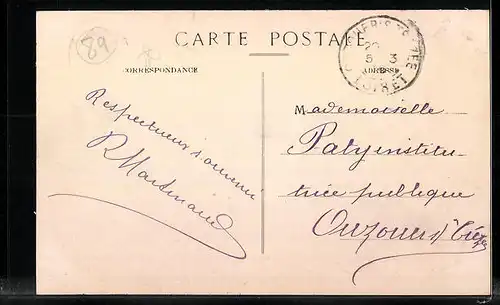 89
CARTE POSTALE
CORRESPONDANCE
ADRESSE
5 3
LOIRET
Respectueux souvenir
R Martinaud
Mademoiselle
Paty institu-
trice publique
Ouzouer s/ Trézée